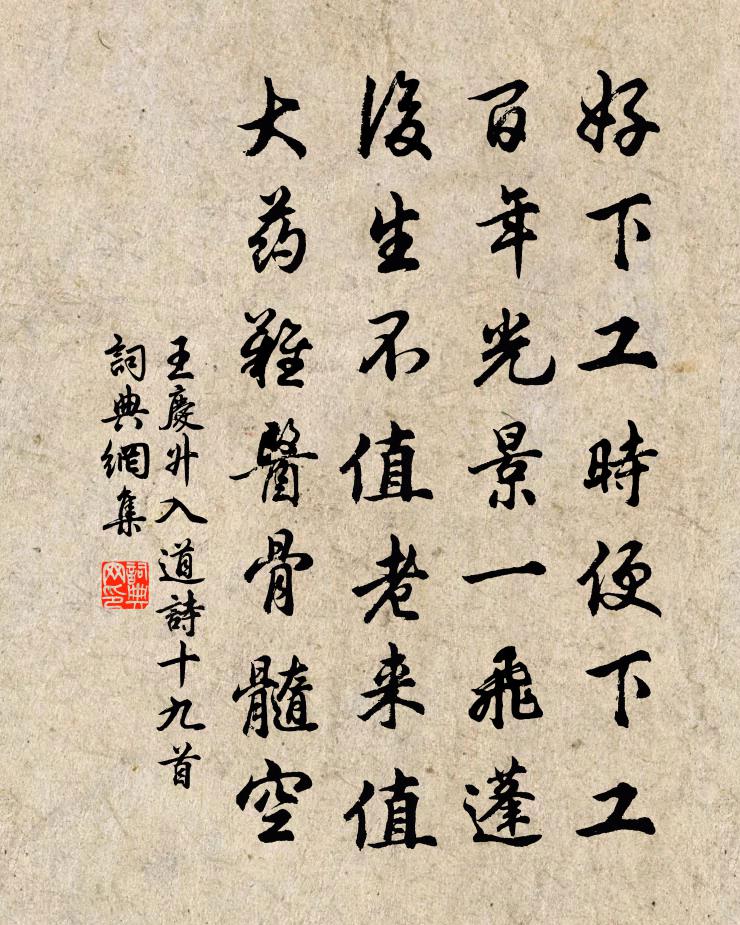 好下工時便下工
百年光景一飛蓬
後生不值老来值
大药難醫骨髓空
王慶升入道詩十九首
詞典網集
詞典网印